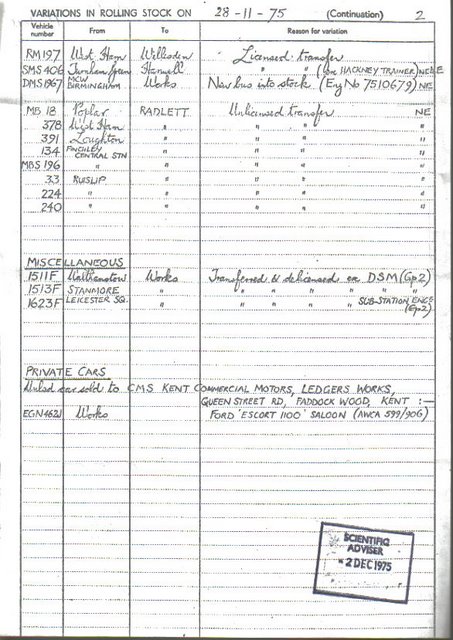 VARIATIONS IN ROLLING STOCK ON 28-11-75 (Continuation) 2
Vehicle number From To Reason for variation
RM197 West Ham Willesden Licensed transfer
SMS 406 Turnham Green Hanwell " " (for HACKNEY TRAINER) NE
DMS1867 MCW BIRMINGHAM Works New bus into stock (Eng No 7510679) NE
MB 18 Poplar RADLETT Unlicensed transfer NE
378 West Ham " " " "
391 Loughton " " " "
134 FINCHLEY CENTRAL STN " " " "
MBS 196 " " " " "
33 RUISLIP " " " "
224 " " " " "
240 " " " " "
MISCELLANEOUS
1511F Walthamstow Works Transferred & delicensed ex DSM (Gp2)
1513F STANMORE " " " " " "
1623F LEICESTER SQ. " " " " " SUB-STATION ENGR (Gp2)
PRIVATE CARS
car sold to CMS KENT COMMERCIAL MOTORS, LEDGERS WORKS,
QUEEN STREET RD, PADDOCK WOOD, KENT :—
EGN 462J Works FORD 'ESCORT 1100' SALOON (AWCA 599/906)
SCIENTIFIC
ADVISER
-2 DEC 1975